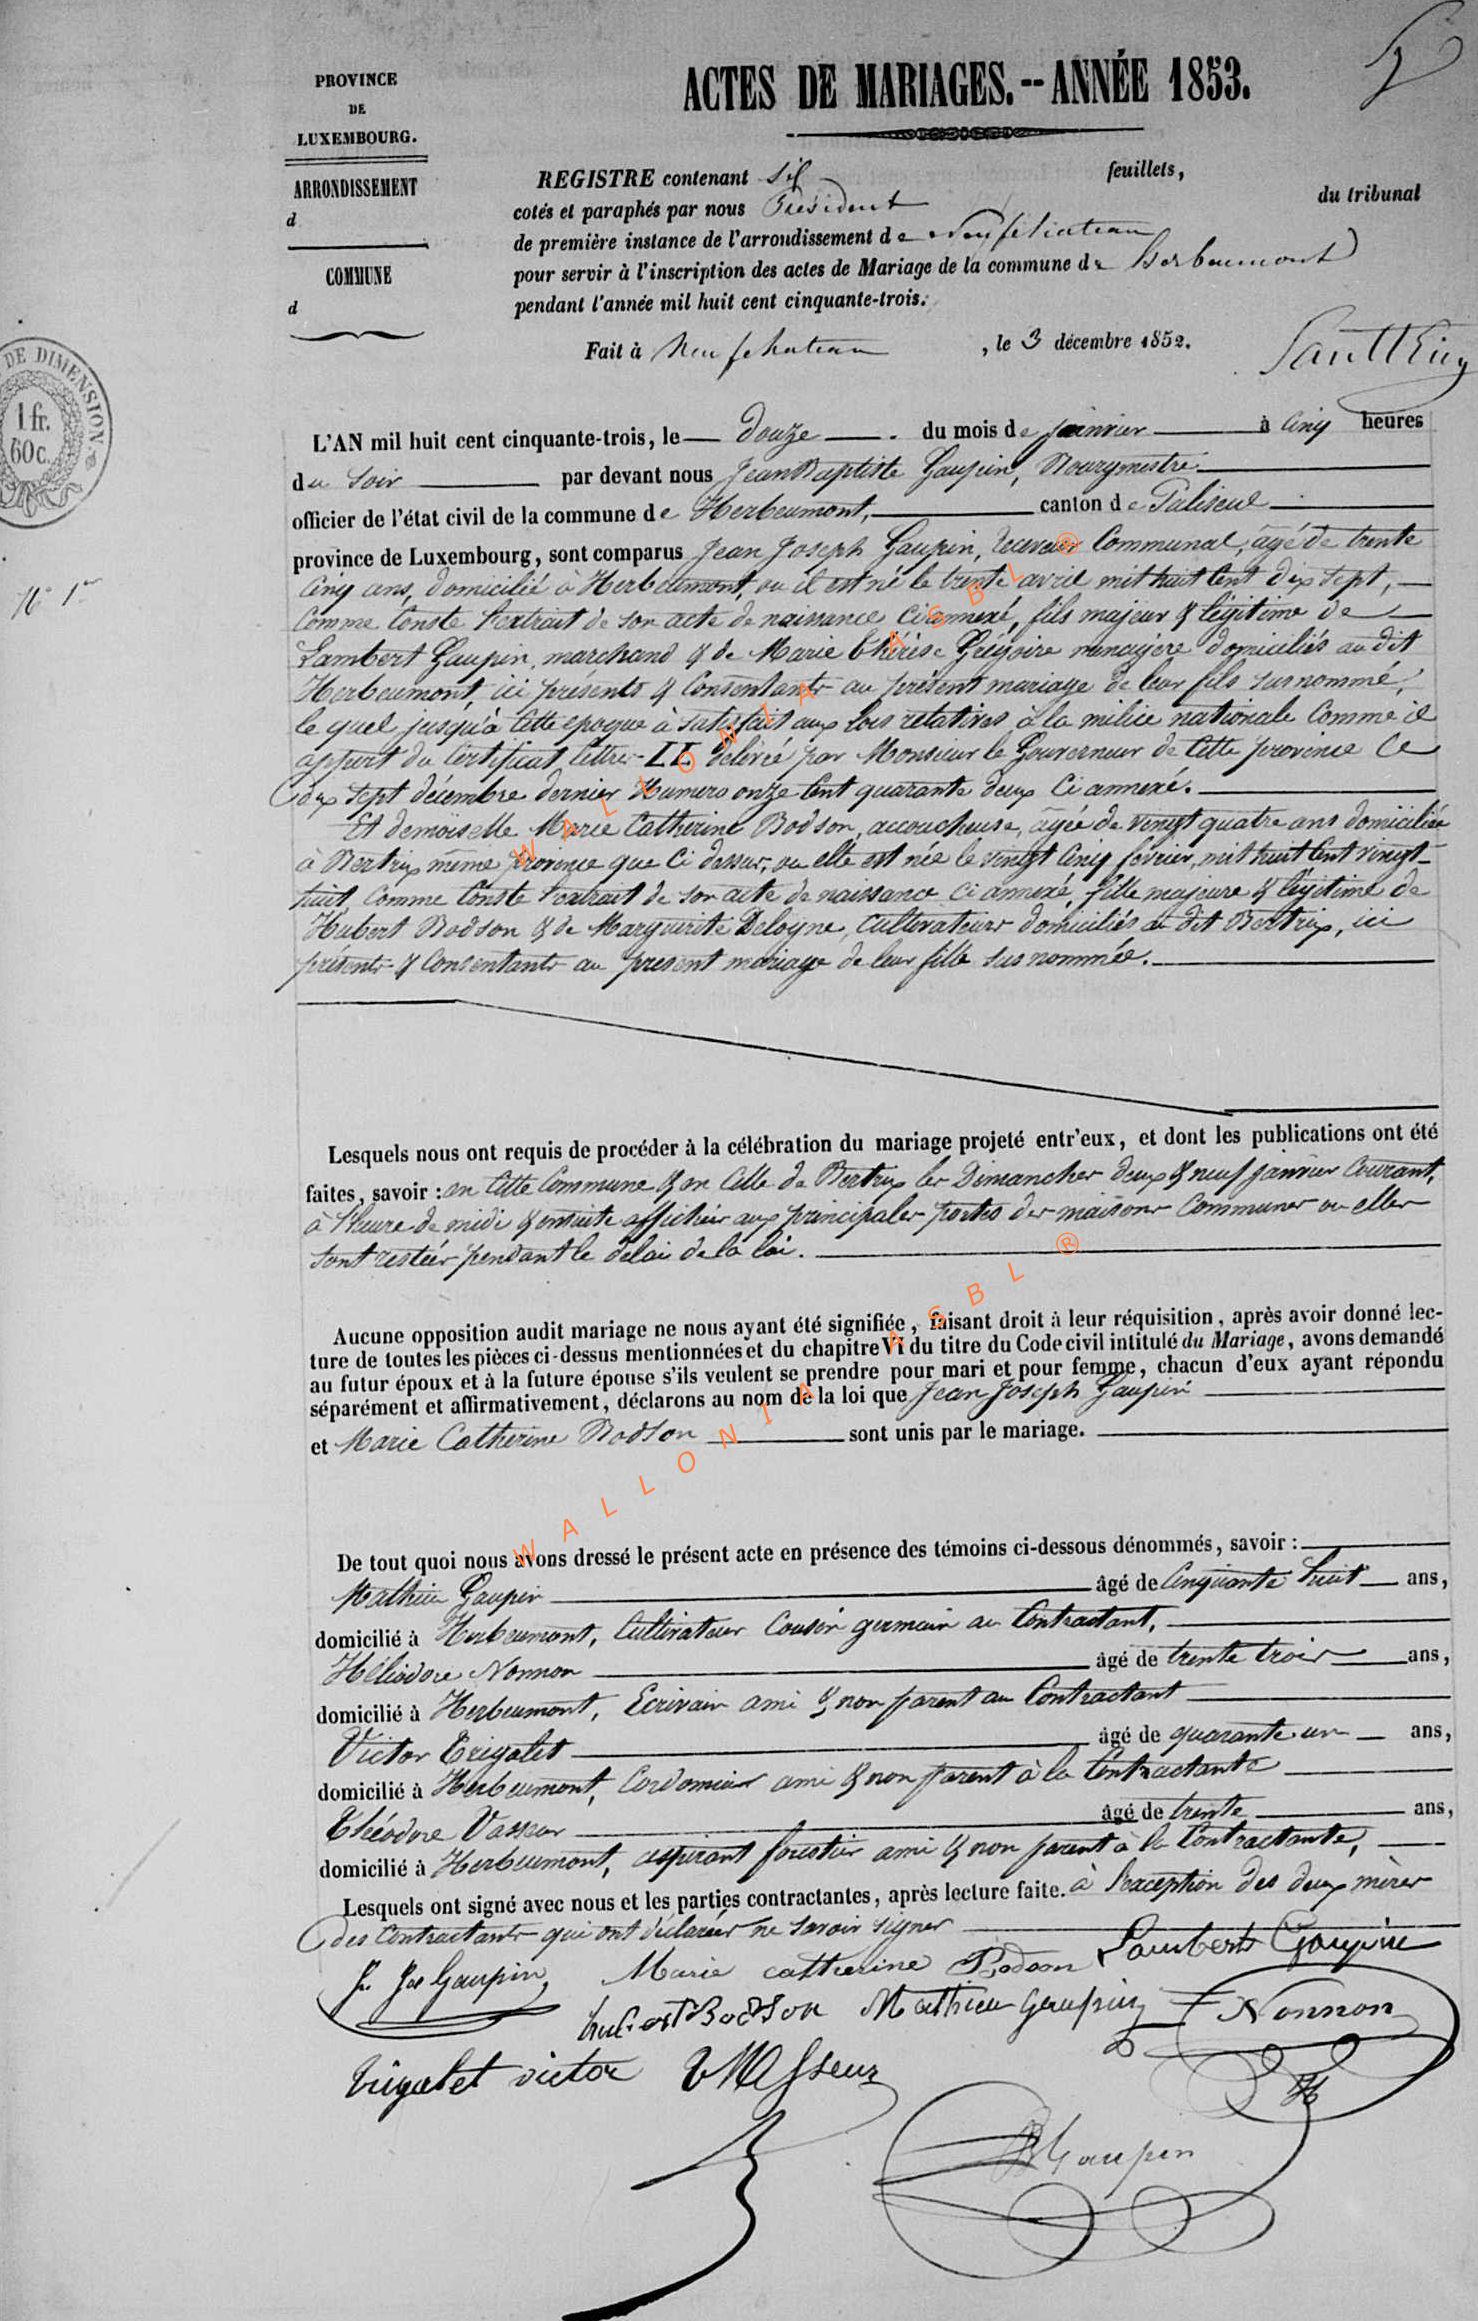 PROVINCE
DE
LUXEMBOURG.
ARRONDISSEMENT
d
COMMUNE
d
ACTES DE MARIAGES. -- ANNÉE 1853.
REGISTRE contenant six feuillets,
cotés et paraphés par nous Président du tribunal
de première instance de l'arrondissement de Neufchateau
pour servir à l'inscription des actes de Mariage de la commune de Herbeumont
pendant l'année mil huit cent cinquante-trois.
Fait à Neufchateau, le 3 décembre 1852.
DE DIMENSION
1 fr.
60c.
N° 1er
L'AN mil huit cent cinquante-trois, le douze du mois de janvier à cinq heures
du soir par devant nous Jean Baptiste Gaupin, Bourgmestre
officier de l'état civil de la commune de Herbeumont, canton de Paliseul
province de Luxembourg, sont comparus Jean Joseph Gaupin, receveur Communal, âgé de trente
cinq ans, domicilié à Herbeumont, ou il est né le trente avril mil huit cent dix sept,
comme conste l'extrait de son acte de naissance ci annexé, fils majeur & légitime de
Lambert Gaupin, marchand & de Marie thérèse Grégoire ménagère domiciliés au dit
Herbeumont, ici présents & Consentants au présent mariage de leur fils susnommé,
le quel jusqu'à cette epoque à satisfait aux lois relatives à la milice nationale Comme il
appert du Certificat lettre LL délivré par Monsieur le Gouverneur de cette province le
dix sept décembre dernier Numero onze cent quarante deux ci annexé.
Et demoiselle Marie Catherine Bodson, accoucheuse, agée de vingt quatre ans domiciliée
à Bertrix même province que ci dessus, ou elle est née le vingt cinq février mil huit cent vingt-
huit, comme conste l'extrait de son acte de naissance ci annexé, fille majeure & légitime de
Hubert Bodson & de Marguerite Delogne, cultivateurs domiciliés au dit Bertrix, ici
présents & Consentants au present mariage de leur fille susnommée.
Lesquels nous ont requis de procéder à la célébration du mariage projeté entr'eux, et dont les publications ont été
faites, savoir : en cette Commune & en Celle de Bertrix les Dimanches deux & neuf janvier courant,
à l'heure de midi & ensuite affichées aux principales portes des maisons Communes ou elles
sont restées pendant le délai de la loi.
Aucune opposition audit mariage ne nous ayant été signifiée, faisant droit à leur réquisition, après avoir donné lec-
ture de toutes les pièces ci-dessus mentionnées et du chapitre VI du titre du Code civil intitulé du Mariage, avons demandé
au futur époux et à la future épouse s'ils veulent se prendre pour mari et pour femme, chacun d'eux ayant répondu
séparément et affirmativement, déclarons au nom de la loi que Jean Joseph Gaupin
et Marie Catherine Bodson sont unis par le mariage.
De tout quoi nous avons dressé le présent acte en présence des témoins ci-dessous dénommés, savoir :
Mathieu Gaupin âgé de Cinquante huit ans,
domicilié à Herbeumont, Cultivateur Cousin germain au Contractant,
Héliodore Nonnon âgé de trente trois ans,
domicilié à Herbeumont, Ecrivain ami & non parent au Contractant
Victor Trigalet âgé de quarante un ans,
domicilié à Herbeumont, Cordonnier ami & non parent à la Contractante
Théodore Vasseur âgé de trente ans,
domicilié à Herbeumont, aspirant forestier ami & non parent à la Contractante,
Lesquels ont signé avec nous et les parties contractantes, après lecture faite. à l'exception des deux mères
des contractants qui ont déclarées ne savoir signer
Jn Jos Gaupin, Marie catherine Bodson Lambert Gaupin
hubert Bodson Mathieu Gaupin Nonnon
trigalet victor Vasseur
JB Gaupin
WALLONIA ASBL ®
WALLONIA ASBL ®